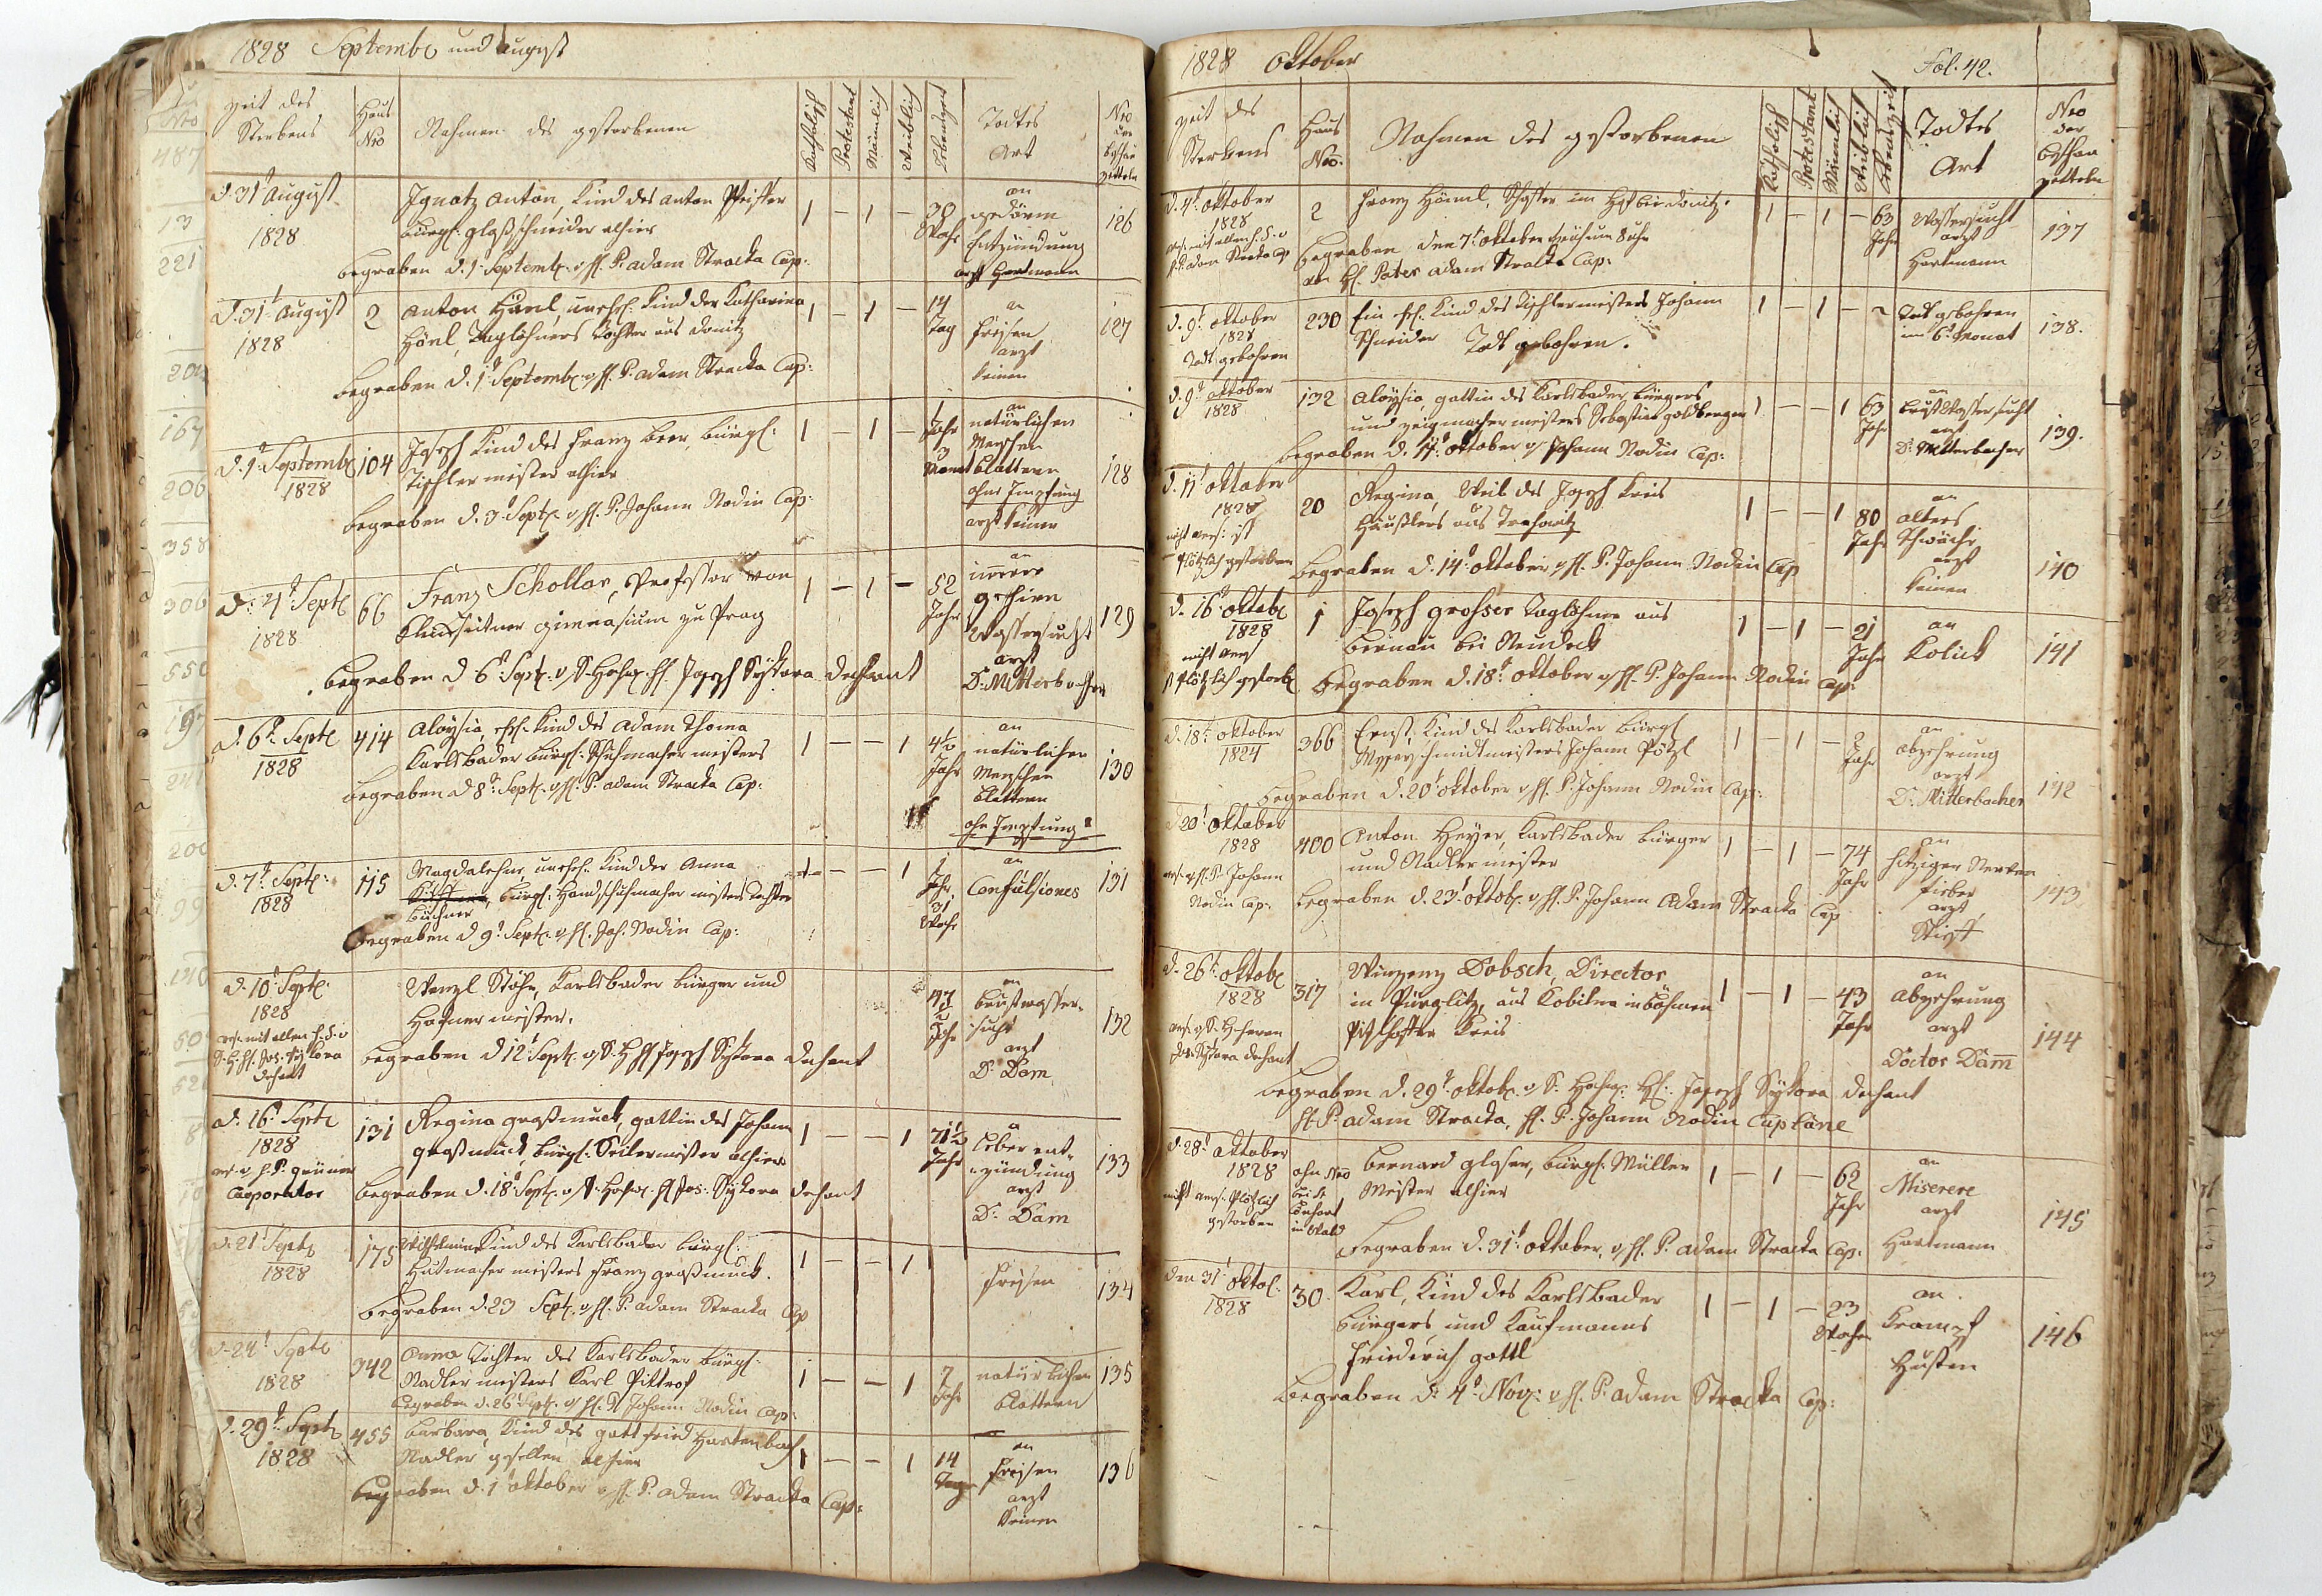 1828 Septembr und August
Zeit des
Sterbens
Haus
Nro
Nahmen des gestorbenen
Katholisch
Protestant
Männlich
Weiblich
Lebenszeit
Todtes
Art
Nro
der
beschau
zetteln
d. 31t August
1828
Ignatz Anton, Kind des Anton Pfeiffer
bürgl: Glasschneider alhier
begraben d. 1t Septemb. v H. P. Adam Stracka Cap:
1 – 1 –
an
gedärm
Entzündung
arzt Hartmann
126
d. 31t August
1828
2
Anton Hänl, unehel. Kind der Katharina
Hönl, Taglöhners Tochter aus Donitz
begraben d. 1t Septemb. v H. P. Adam Stracka Cap:
1 – 1 –
14
Tag
an
Freisen
arzt
keinen
127
d. 1t Septemb
1828
104
Joseph Kind des Franz Beer bürgl:
Tischlermeister alhier
begraben d. 3t Sept. v H. P. Johann Nodin Cap:
1 1 –
1
Jahr
3
Monat
an
natürlichen
Menschen
Blattern
ohne Impfung
arzt keiner
128
d. 4t Sept
1828
66
Franz Schollar, Professor von
Kleinseitner Gimnasium zu Prag
begraben d 6t Sept. v S. Hochw. H. Joseph Sykora Dechant
1 – 1 –
52
Jahr
an
innere
gehirn
Wassersucht
arzt
D. Mitterbacher
129
d. 6t Sept
1828
414
Aloysia, ehel. Kind des Adam Thoma
Karlsbader bürgl. Schuhmacher meisters
begraben d 8t Sept. v H. P. Adam Stracka Cap:
1 – – 1
4½
Jahr
an
natürlicher
Menschen
Blattern
ohn Impfung
130
d. 7t Sept:
1828
115
Magdalehna, unehel. Kind der Anna
Büchner, bürgl: Handschuhmacher meisters Tochter
begraben d 9t Sept. v H. Joh. Nodin Cap:
1 – – 1
1
Jahr
31
Woche
an
Confulsiones
131
d. 10t Sept:
1828
Jos. Sykora
Dechant
Wenzl Stöhr, Karlsbader bürger und
Hafner meister.
begraben d 12t Sept. v S. H. H. Joseph Sykora Dechant
an
brustwasser-
sucht
arzt
D. Dam
132
d. 16t Sept
1828
Grüner
Cooperator
131
Regina Graßmuck, gattin des Johann
Graßmuck, bürgl: Seilermeister alhier
begraben d. 18t Sept. v S. Hochw. H Jos: Sykora Dechant
1 – – 1
71½
Jahr
an
Leber ent-
zündung
arzt
D. Dam
133
d. 21t Sept
1828
175
Wilhelmine Kind des Karlsbader bürgl:
Hutmacher meisters Franz Graßmuck.
begraben d. 23 Sept. v H. P. Adam Stracka Cap
1 – – 1
Freisen
134
d. 24t Sept
1828
342
Anna Tochter des Karlsbader bürgl:
Nadler meisters Karl Pittrof
begraben d. 26t Sept. v H. P. Johann Nodin Cap:
1 – – 1
7
Jahr
natürlichen
Blattern
135
d. 29t Sept
1828
455
Barbara, Kind des Gottfried Hartenbach
Nadler gesellen alhier
begraben d. 1t Oktober v H. P. Adam Stracka Cap:
1 – – 1
14
Tage
an
Freisen
arzt
Keinen
136
1828 Oktober
Fol. 42.
Zeit des
Sterbens
Haus
Nro.
Nahmen des gestorbenen
Katholisch
Protestant
Männlich
Weiblich
Lebenszeit
Todtes
Art
Nro
der
Beschau
zetteln
d. 4t Oktober
1828
P. Adam Stracka Cap
2
Franz Häml, Schaffer im Hof bei Donitz.
begraben den 7t Oktober früh um 8 Uhr
von H. Pater Adam Stracka Cap:
1 – 1 –
63
Jahr
Wassersucht
arzt
Hartmann
137
d. 9t Oktober
1828
Todt gebohren
230
Ein ehl. Kind des Tischlermeisters Johann
Schneider Todt gebohren.
1 – 1 –
Todt gebohren
im 6t Monat
138.
d. 9t Oktober
1828
132
Aloysia, gattin des Karlsbader bürgers
und Zeigmacher meisters Sebastian Goldberger
begraben d. 11t Oktober v Johann Nodin Cap:
1 – – 1
63
Jahr
an
brustwassersucht
arzt
D. Mitterbacher
139.
d. 11t Oktober
1828
plötzlich gestorben
20
Regina, Weib des Joseph Kreis
Häußlers aus Trahowitz
begraben d. 14t Oktober v H. P. Johann Nodin Cap
1 – – 1
80
Jahr
an
alters
Schwäche
arzt
keinen
140
d. 16t Oktob
1828
nicht vers
plötzlich gestorb
1
Joseph Grosser Taglöhner aus
Bernau bei Neudeck
begraben d. 18t Oktober v H. P. Johann Nodin Cap:
1 – 1 –
21
Jahr
an
Kolick
141
d. 18t Oktober
1824
366
Ernst, Kind des Karlsbader bürgl
Messerschmidtmeisters Johann Pötzl
begraben d. 20t Oktober v H. P. Johann Nodin Cap:
1 – 1 –
2
Jahr
an
Abzehrung
arzt
D. Mitterbacher
142
d 20t Oktober
1828
vers. v H. P. Johann
Nodin Cap:
400
Anton Heyer, Karlsbader bürger
und Nadlermeister
begraben d. 23t Oktob. v H. P. Johann Adam Stracka Cap
1 – 1 –
74
Jahr
an
hitziger Nerven
fieber
arzt
Stigt
143
d. 26t Oktob
1828
Jos. Sykora Dechant
317
Winzenz Dobsch, Director
in Pürglitz, aus Kobilna in Böhmen
Kreis
begraben d. 29t Oktob. v S. Hochw: H. Joseph Sykora Dechant
H. P. Adam Stracka, H. P. Johann Nodin Capläne
1 – 1 –
43
Jahr
an
Abzehrung
arzt
Doctor Dam̅
144
d. 28t Oktober
1828
nicht vers. plötzlich
gestorben
ohn Nro
bei St.
Leonhart
in Wald
Bernard Glaser, bürgl: Müller
Meister alhier
begraben d. 31t Oktober, v H. P. Adam Stracka Cap:
1 – 1 –
62
Jahr
an
Miserere
arzt
Hartmann
145
den 31t Oktob.
1828
30
Karl, Kind des Karlsbader
bürgers und Kaufmanns
Friederich Gottl
begraben d. 4t Nov: v H. P. Adam Stracka Cap:
1 – 1 –
23
Wochen
an
Krampf
Husten
146